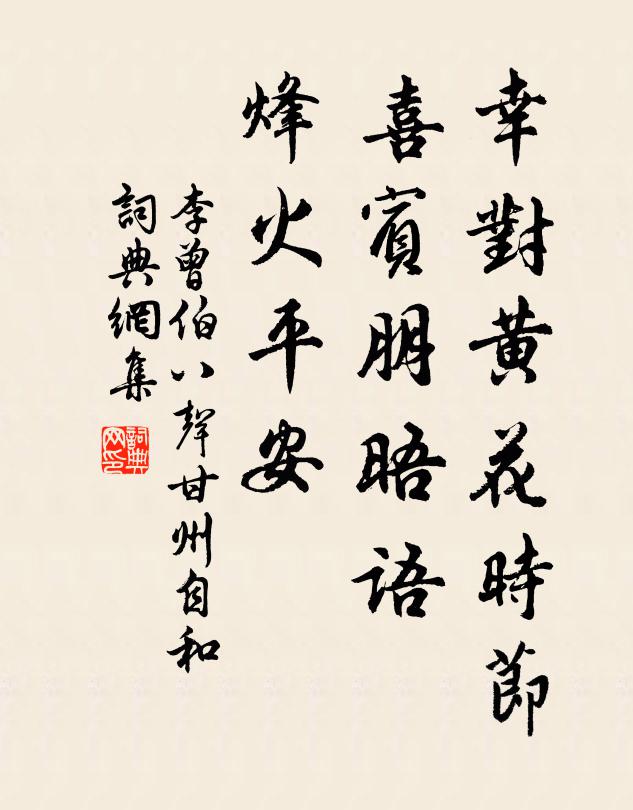 幸對黃花時節
喜賓朋晤語
烽火平安
李曾伯八聲甘州自和
詞典網集
詞典网印